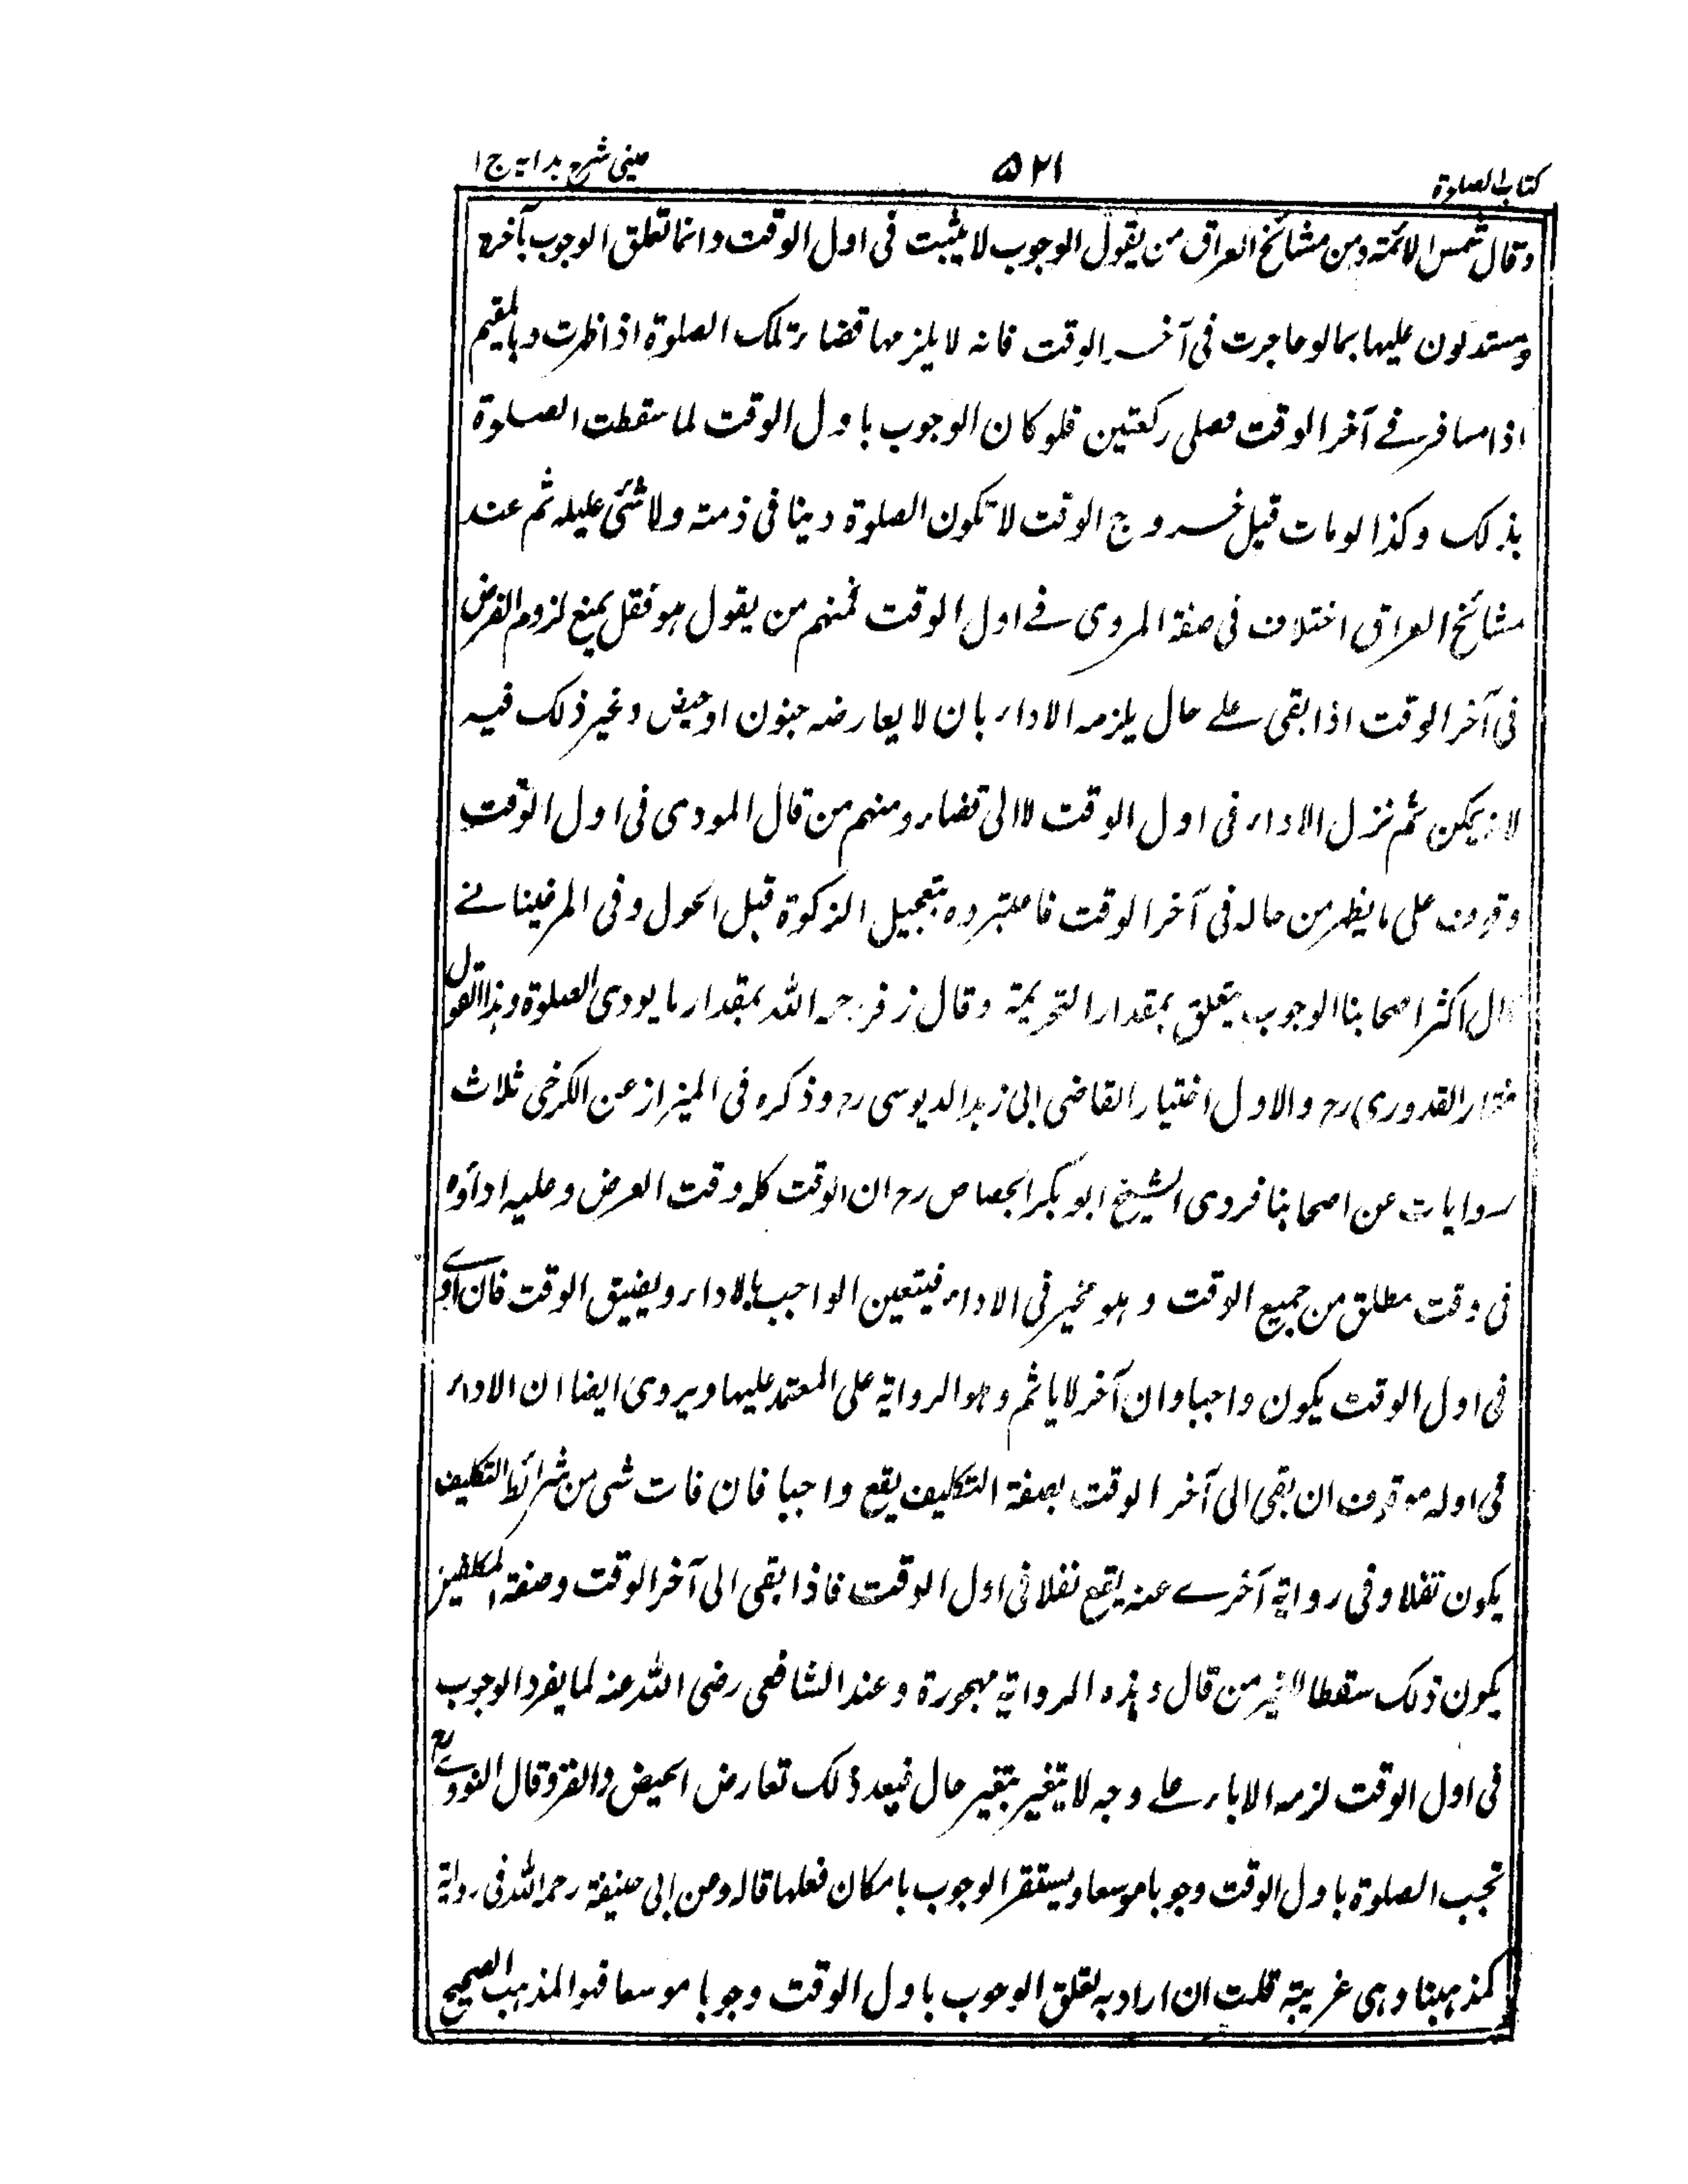 كتاب الصلوة
٥٢١
عينى شرح هداية ج ١
وقال شمس الائمة ومن مشائخ العراق من يقول الوجوب لا يثبت فى اول الوقت وانما تعلق الوجوب بآخره
ويستدلون عليها بما لو حاجرت فى آخر الوقت فانه لا يلزمها قضاء تلك الصلوة اذا ظهرت وبالمقيم
اذا مسافر فے آخر الوقت فصلى ركعتين فلو كان الوجوب باول الوقت لما سقطت الصلوة
بذلك وكذا لو مات قبل خروج الوقت لا تكون الصلوة دينا فى ذمته ولا شئى عليه ثم عند
مشائخ العراق اختلاف فى صفة المروى فے اول الوقت فمنهم من يقول هو نفل يمنع لزوم الفرض
فى آخر الوقت اذا بقى علے حال يلزمه الاداء بان لا يعارضه جنون او حيض وغير ذلك فيه
لانه يمكن ثم نزل الاداء فى اول الوقت لا الى قضاء ومنهم من قال المودى فى اول الوقت
وقوف على ما يظهر من حاله فى آخر الوقت فاعتبروه بتعجيل الزكوة قبل الحول وفى المرغينانے
قال اكثر اصحابنا الوجوب يتعلق بمقدار التحريمة وقال زفر رحمه الله بمقدار ما يودى الصلوة وهذا القول
مختار القدورى رح والاول اختيار القاضى ابى زيد الدبوسى رح وذكره فى الميزان عن الكرخى ثلاث
روايات عن اصحابنا فروى الشيخ ابو بكر الجصاص رح ان الوقت كله وقت الفرض وعليه اداؤه
فى وقت مطلق من جميع الوقت وهو مخير فى الاداء فيتعين الواجب بالاداء ويضيق الوقت فان ادى
فى اول الوقت يكون واجبا وان آخر لا ياثم وهو الرواية على المعتمد عليها ويروى ايضا ان الاداء
فى اوله موقوف ان بقى الى آخر الوقت بصفة التكليف يقع واجبا فان فات شى من شرائط التكليف
يكون نفلا وفى رواية آخرے عنه يقع نفلا فى اول الوقت فاذا بقى الى آخر الوقت وصفة المكلفين
يكون ذلك سقطا للغير من قال وهذه الرواية مهجورة وعند الشافعى رضى الله عنه لما يفرد الوجوب
فى اول الوقت لزمه الاباء علے وجه لا يتغير بتغير حال فبعد ذلك تعارض الحيض والفر وقال النووے رح
تجب الصلوة باول الوقت وجوبا موسعا ويستقر الوجوب بامكان فعلها قاله وعن ابى حنيفة رحمه الله فى رواية
كمذهبنا وهى غريبة قلت ان اراد به تعلق الوجوب باول الوقت وجوبا موسعا فهو المذهب الصحيح